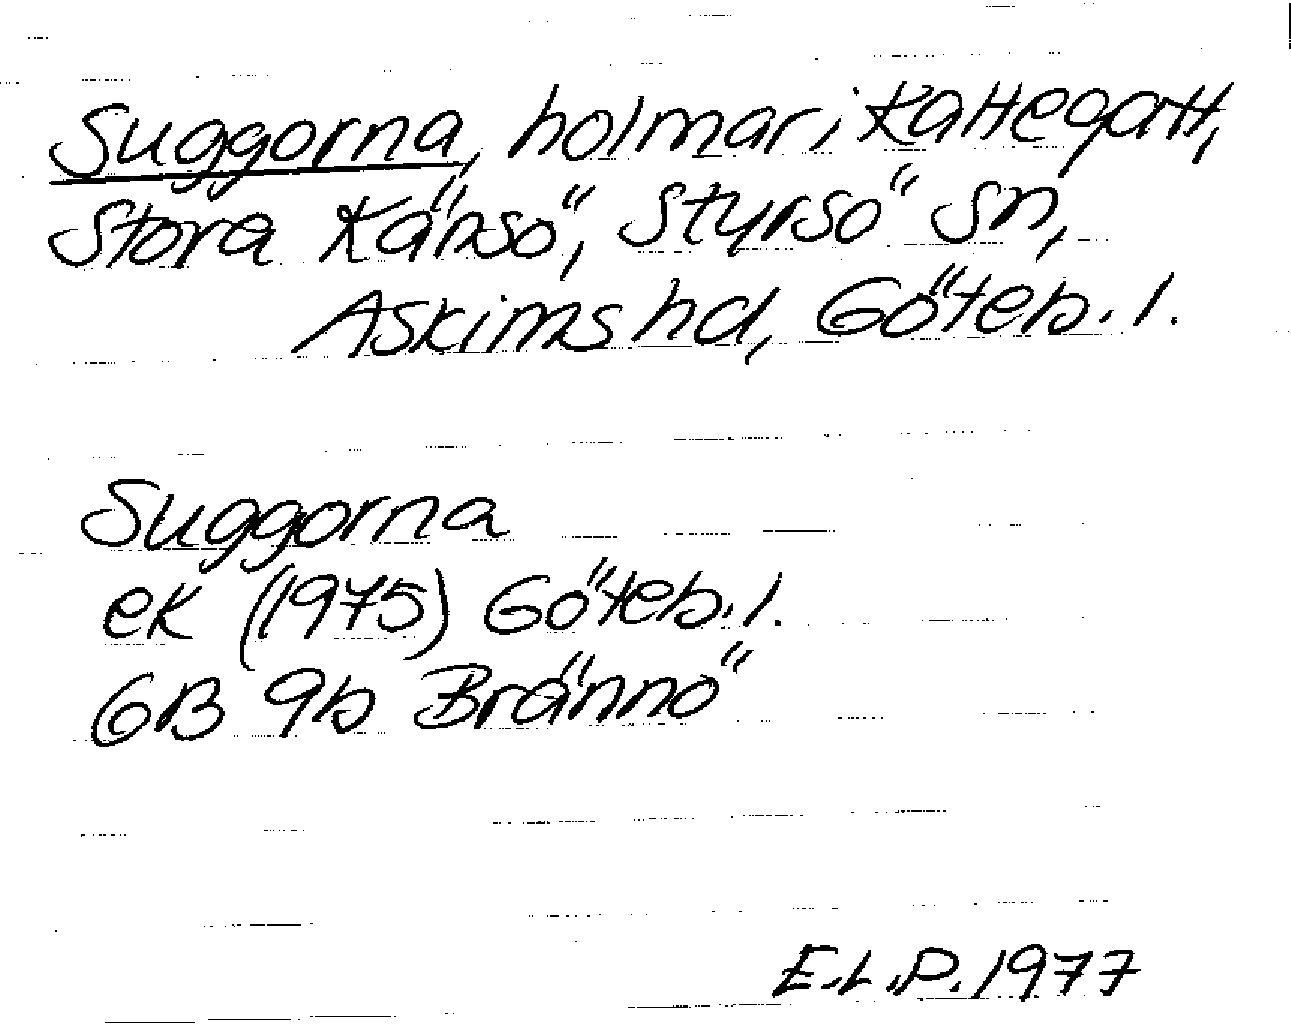 Suggorna, holmar i Kattegatt,
Stora Känsö, Styrsö sn,
Askims hd, Göteb. l.
Suggorna
ek (1975) Göteb. l.
GB 9b Brännö
E.L.P. 1977